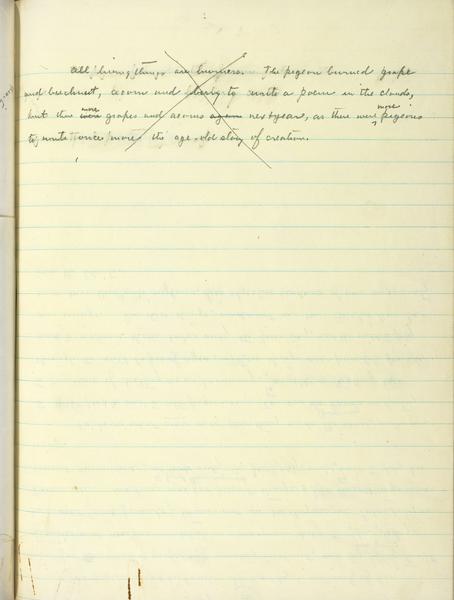 All living things are burners. The pigeon burned grape
and beechnut, acorn and berry to write a poem in the clouds,
but there were more grapes and acorns again next year, as there were more pigeons
to write once more the age-old story of creation.